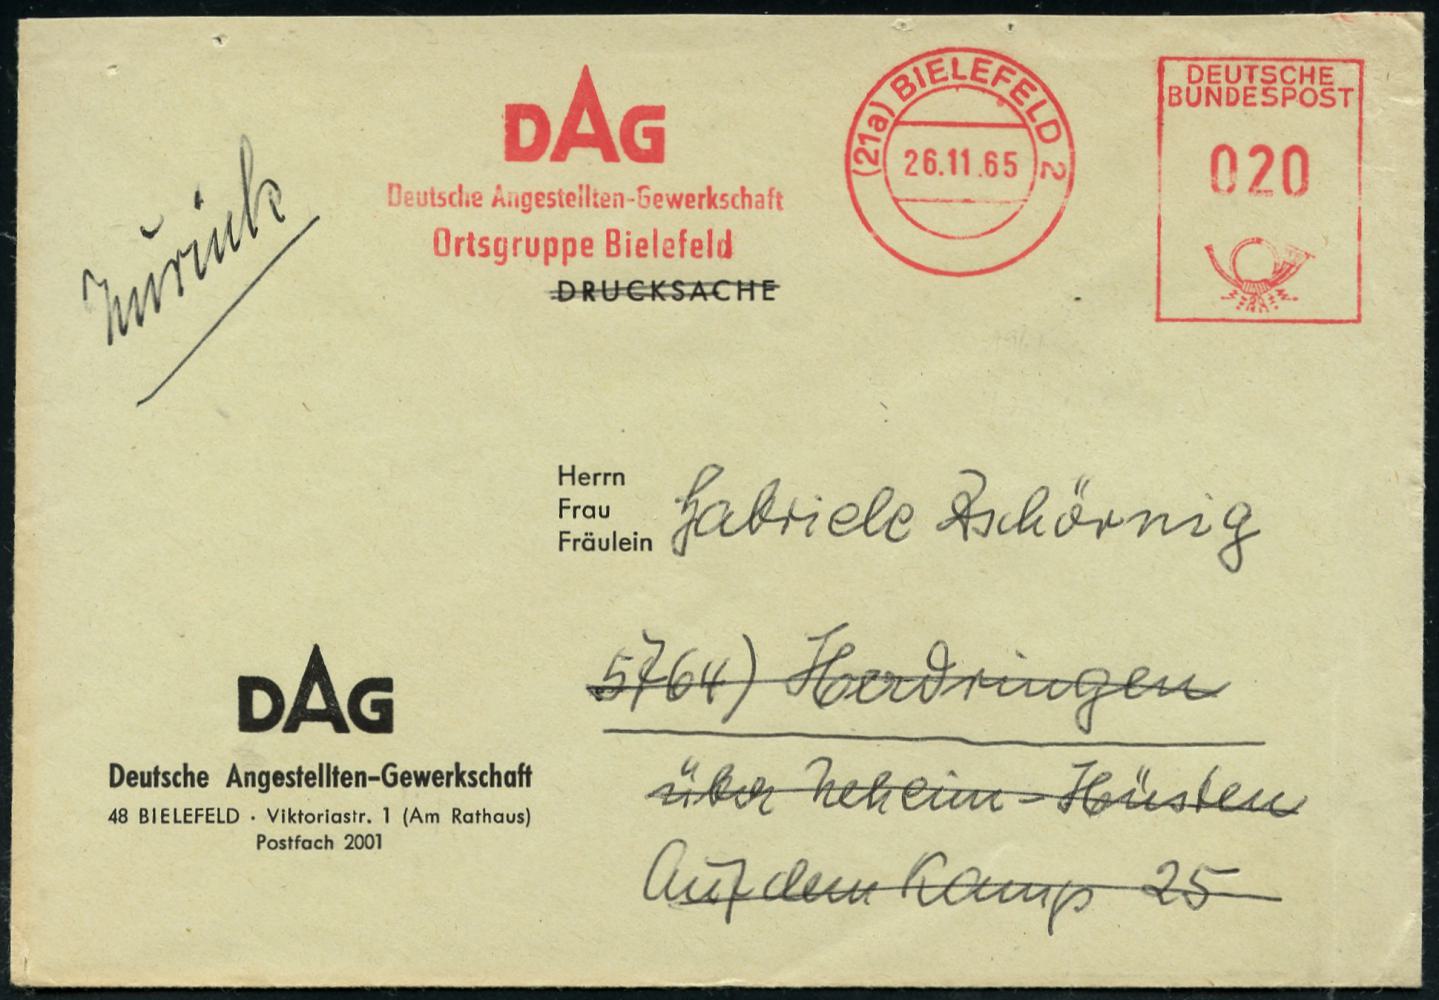 DAG
Deutsche Angestellten-Gewerkschaft
Ortsgruppe Bielefeld
DRUCKSACHE
(21a) BIELEFELD 2
26.11.65
DEUTSCHE
BUNDESPOST
020
Zurück
Herrn
Frau
Fräulein
Gabriele Zschörnig
5764) Herdringen
über Neheim-Hüsten
Auf dem Kamp 25
DAG
Deutsche Angestellten-Gewerkschaft
48 BIELEFELD · Viktoriastr. 1 (Am Rathaus)
Postfach 2001